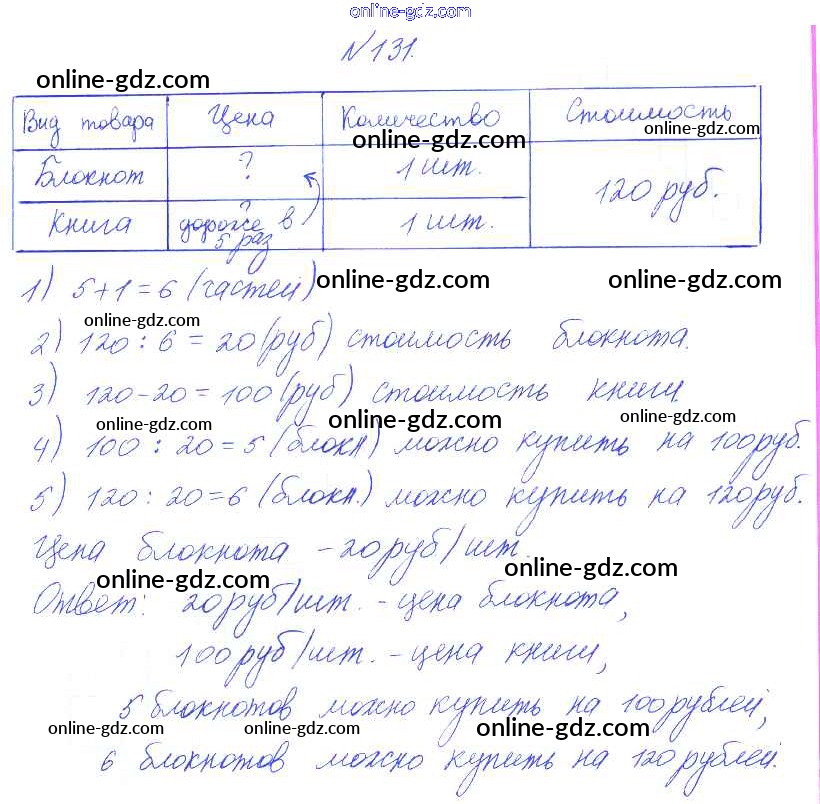 online-gdz.com
№131.
online-gdz.com
Вид товара Цена Количество Стоимость
online-gdz.com online-gdz.com
Блокнот ? 1 шт. 120 руб.
Книга ? дороже в 5 раз 1 шт.
1) 5+1=6 (частей) online-gdz.com online-gdz.com
online-gdz.com
2) 120 : 6 = 20 (руб) стоимость блокнота.
3) 120-20=100 (руб) стоимость книги
online-gdz.com online-gdz.com online-gdz.com
4) 100 : 20 = 5 (блокн) можно купить на 100 руб.
5) 120 : 20 = 6 (блокн.) можно купить на 120 руб.
Цена блокнота - 20 руб/шт.
online-gdz.com online-gdz.com
Ответ: 20 руб/шт. - цена блокнота,
100 руб/шт. - цена книги,
5 блокнотов можно купить на 100 рублей,
online-gdz.com online-gdz.com online-gdz.com
6 блокнотов можно купить на 120 рублей.